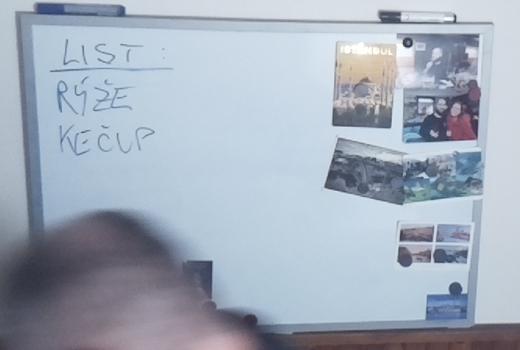 LIST:
RÝŽE
KEČUP
ISTANBUL